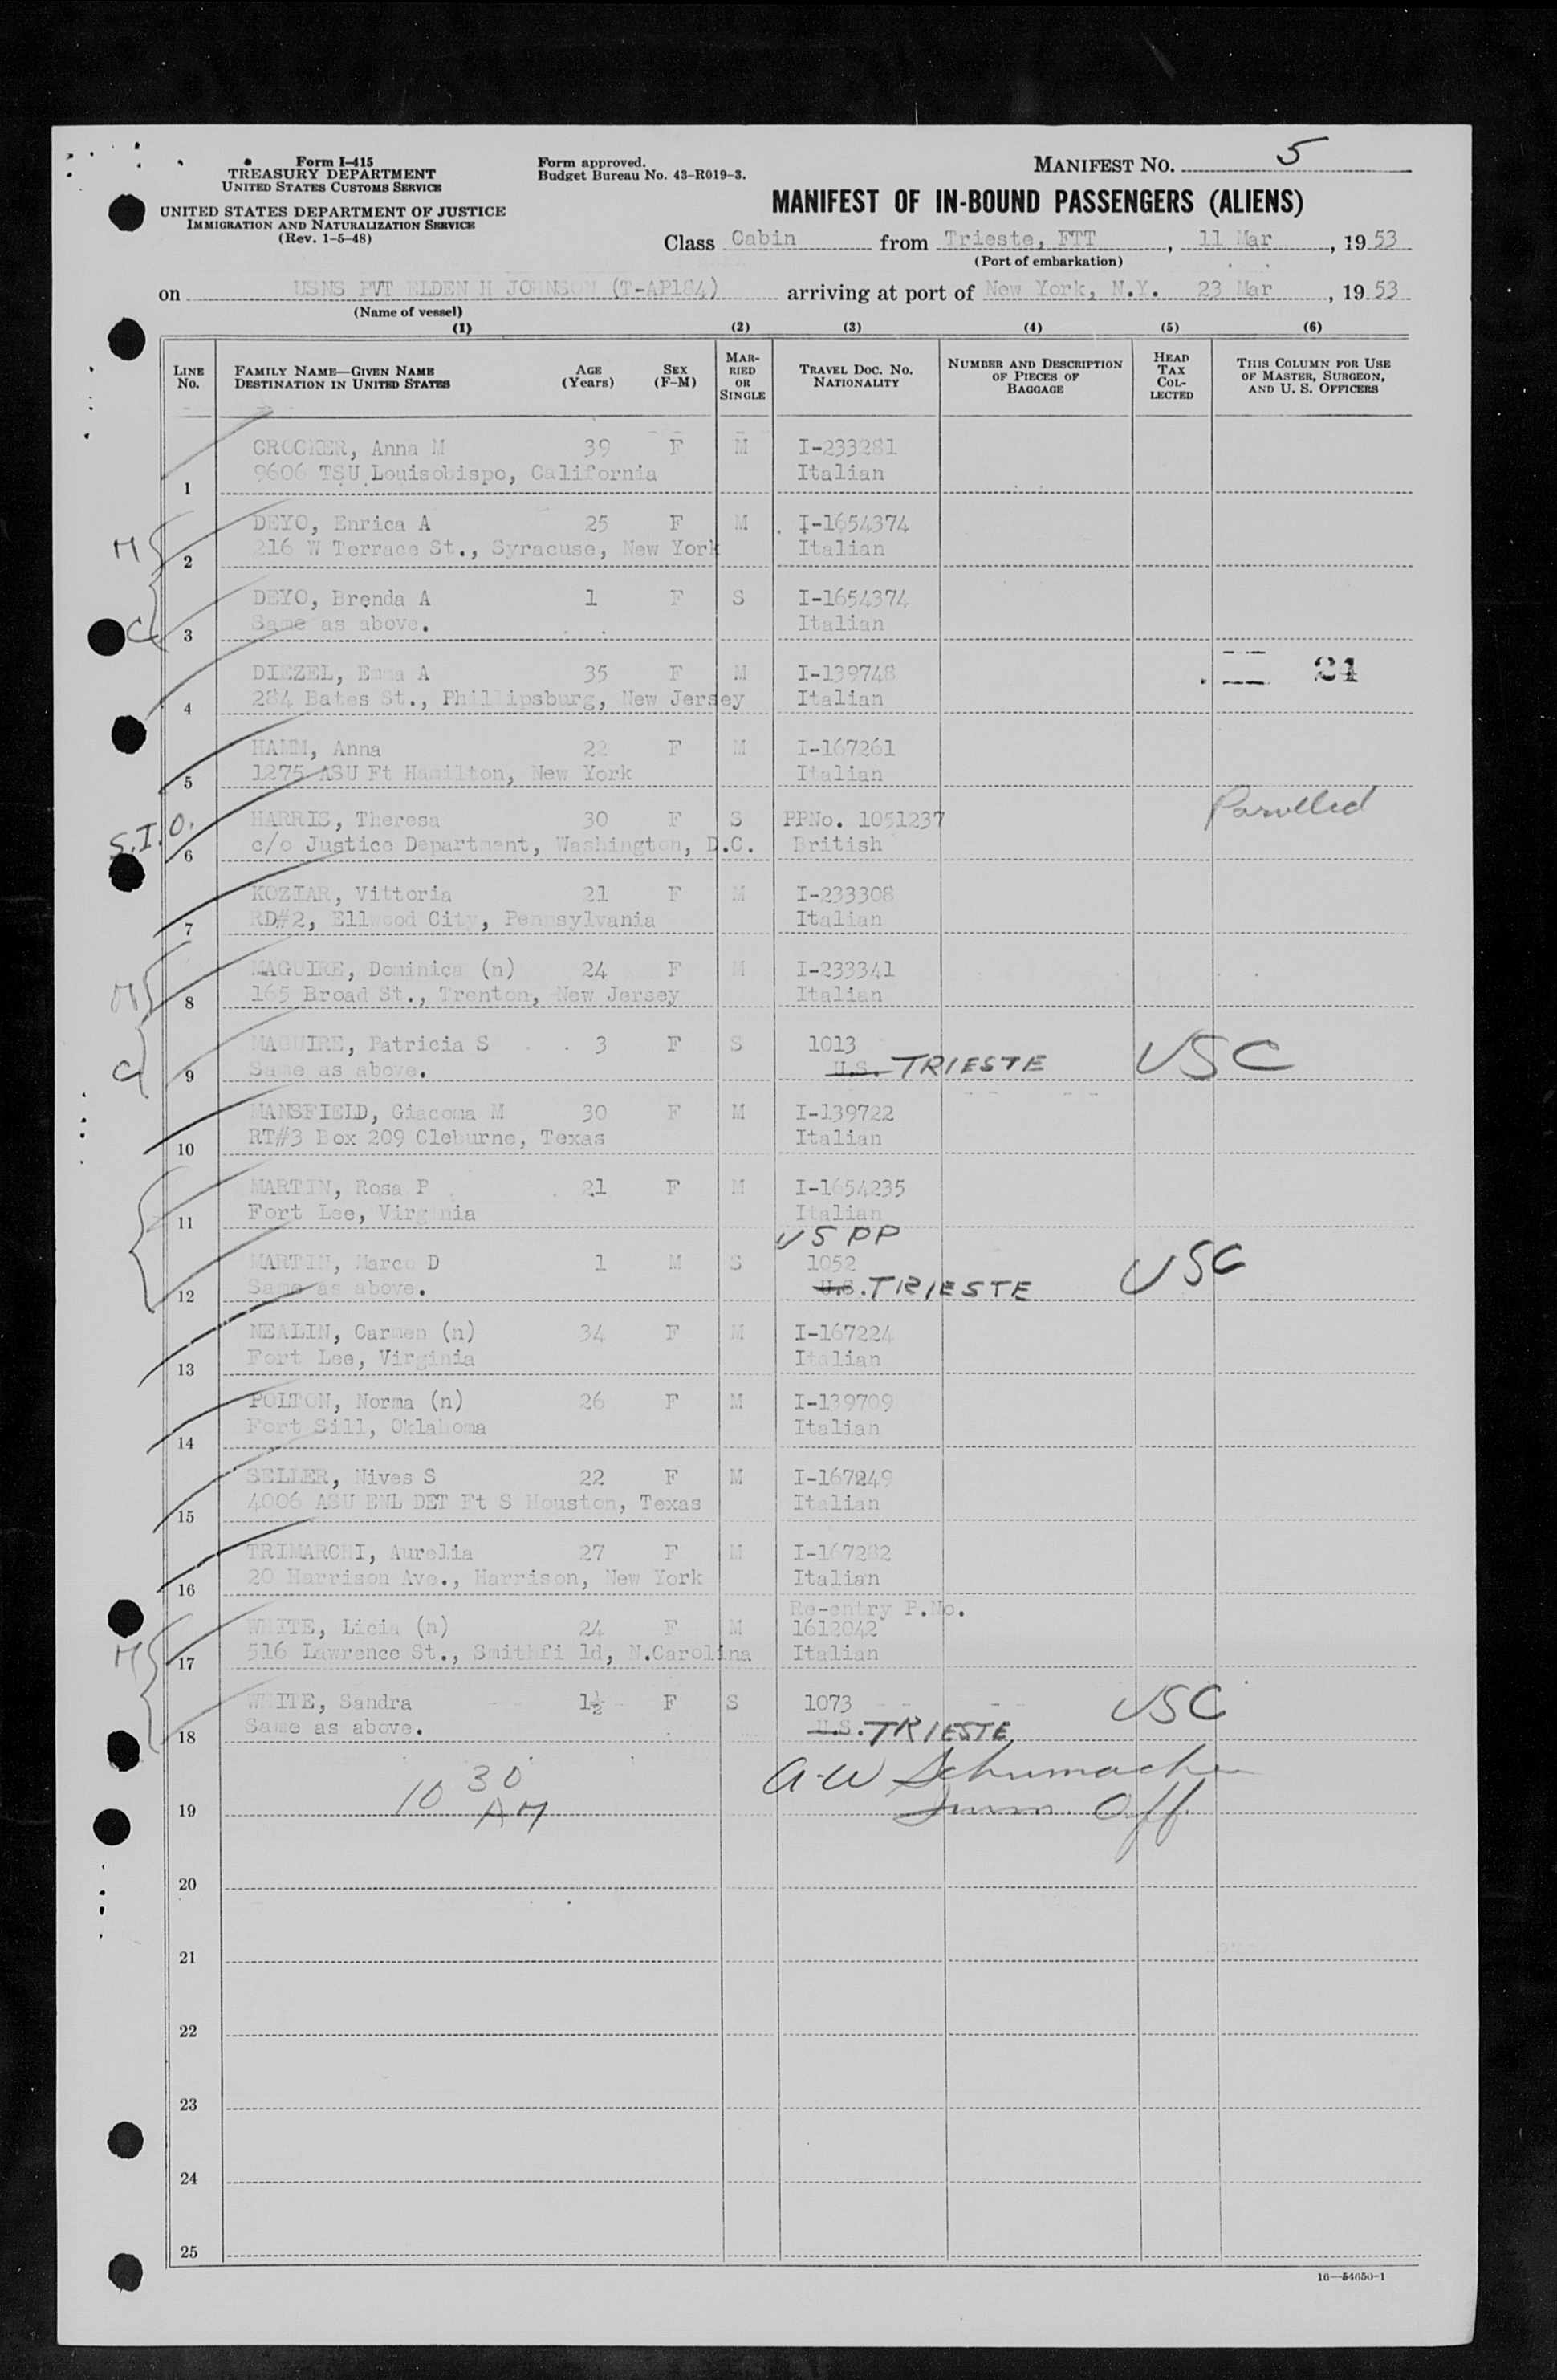 Form I-415
TREASURY DEPARTMENT
UNITED STATES CUSTOMS SERVICE
UNITED STATES DEPARTMENT OF JUSTICE
IMMIGRATION AND NATURALIZATION SERVICE
(Rev. 1-5-48)
Form approved.
Budget Bureau No. 43-R019-3.
MANIFEST NO. 5
MANIFEST OF IN-BOUND PASSENGERS (ALIENS)
Class Cabin from Trieste, FTT, 11 Mar, 1953
(Port of embarkation)
on USNS PVT ELDEN H JOHNSON (T-AP184) arriving at port of New York, N.Y. 23 Mar, 1953
(Name of vessel)
(1) (2) (3) (4) (5) (6)
LINE NO. FAMILY NAME—GIVEN NAME DESTINATION IN UNITED STATES AGE (Years) SEX (F-M) MARRIED OR SINGLE TRAVEL DOC. NO. NATIONALITY NUMBER AND DESCRIPTION OF PIECES OF BAGGAGE HEAD TAX COLLECTED THIS COLUMN FOR USE OF MASTER, SURGEON, AND U. S. OFFICERS
CROCKER, Anna M 39 F M I-233281
1 9606 TSU Louisobispo, California Italian
M DEYO, Enrica A 25 F M I-1654374
2 216 W Terrace St., Syracuse, New York Italian
DEYO, Brenda A 1 F S I-1654374
C 3 Same as above. Italian
DIEZEL, Emma A 35 F M I-139748 21
4 284 Bates St., Phillipsburg, New Jersey Italian
HAMM, Anna 22 F M I-167261
5 1275 ASU Ft Hamilton, New York Italian
S.I.O. HARRIS, Theresa 30 F S PPNo. 1051237 Parolled
6 c/o Justice Department, Washington, D.C. British
KOZIAR, Vittoria 21 F M I-233308
7 RD#2, Ellwood City, Pennsylvania Italian
M MAGUIRE, Dominica (n) 24 F M I-233341
8 165 Broad St., Trenton, New Jersey Italian
C MAGUIRE, Patricia S 3 F S 1013 USC
9 Same as above. U.S. TRIESTE
MANSFIELD, Giacoma M 30 F M I-139722
10 RT#3 Box 209 Cleburne, Texas Italian
MARTIN, Rosa P 21 F M I-1654235
11 Fort Lee, Virginia Italian
US PP
MARTIN, Marco D 1 M S 1052 USC
12 Same as above. U.S. TRIESTE
NEALIN, Carmen (n) 34 F M I-167224
13 Fort Lee, Virginia Italian
POLTON, Norma (n) 26 F M I-139709
14 Fort Sill, Oklahoma Italian
SELLER, Nives S 22 F M I-167249
15 4006 ASU ENL DET Ft S Houston, Texas Italian
TRIMARCHI, Aurelia 27 F M I-167282
16 20 Harrison Ave., Harrison, New York Italian
Re-entry P.No.
M WHITE, Licia (n) 24 F M 1612042
17 516 Lawrence St., Smithfi ld, N.Carolina Italian
WHITE, Sandra 1½ F S 1073 USC
18 Same as above. U.S. TRIESTE
10 30 AM A-W Schumacher
19 Imm. Off.
20
21
22
23
24
25
16—54650-1